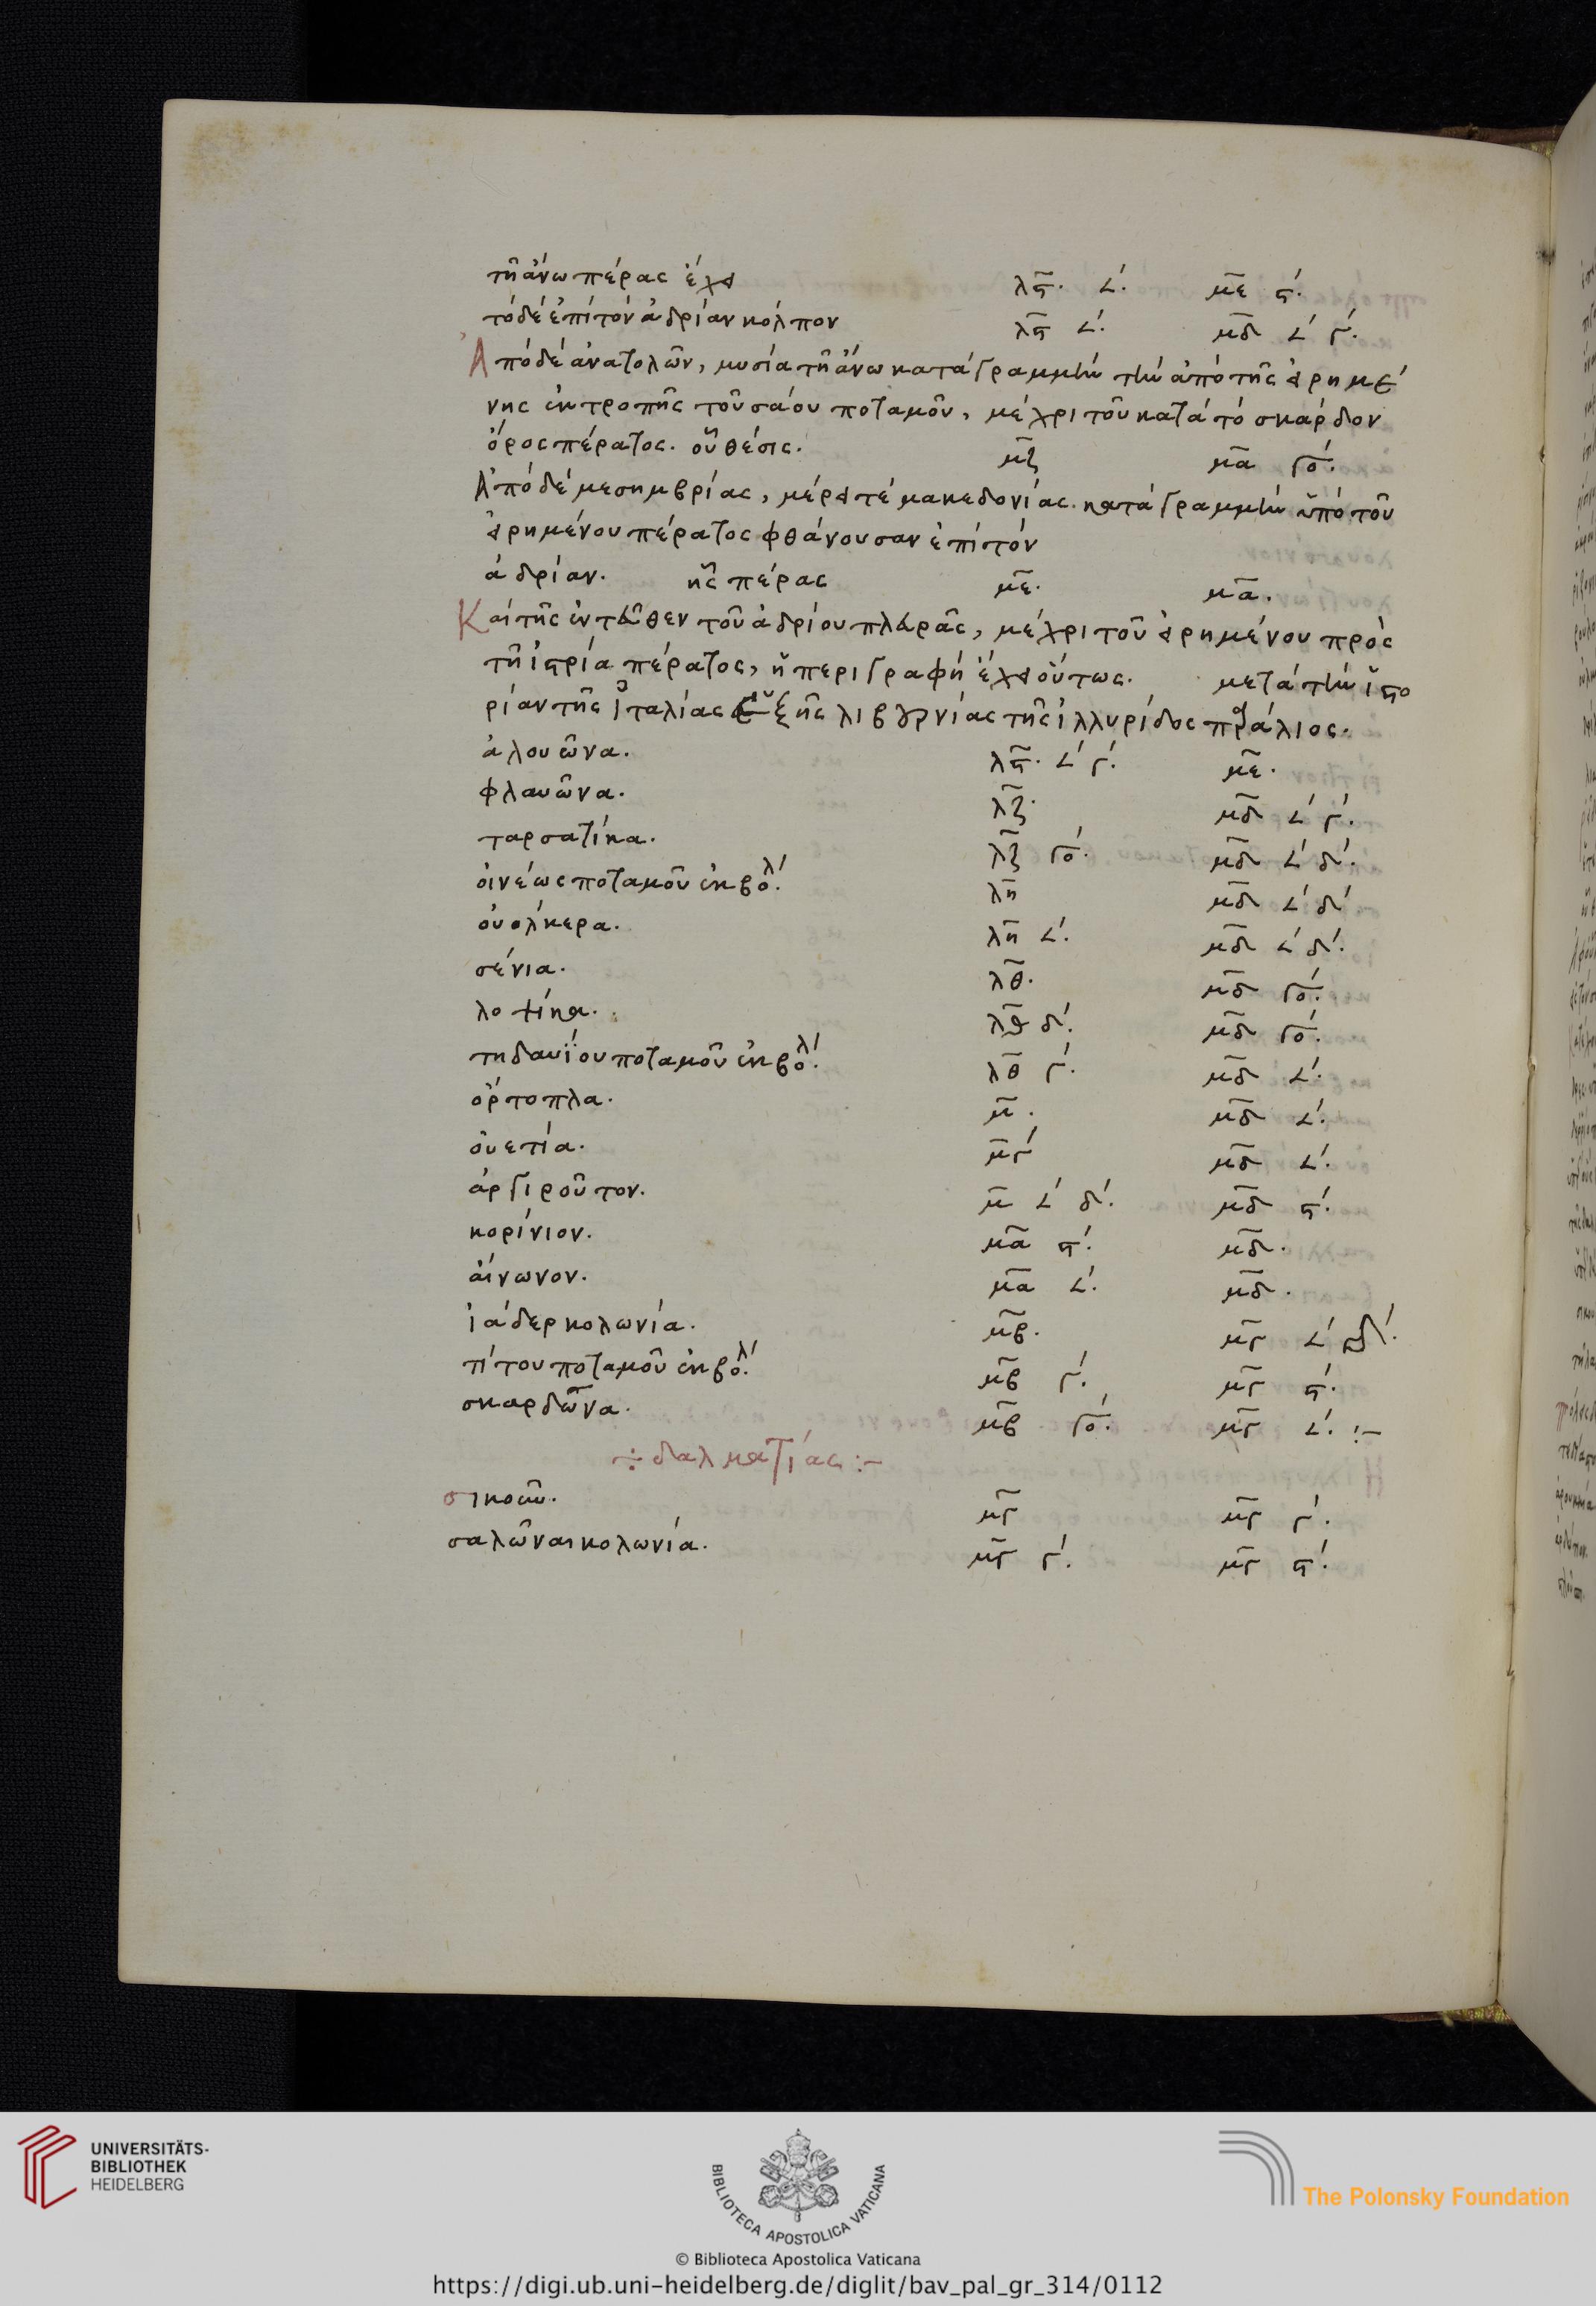 τῆ ἄνω πέρας ἔχει λϛ. 𐅵ʹ. με ϛʹ.
τὸ δὲ ἐπὶ τὸν ἀδρίαν κόλπον λϛ 𐅵ʹ. μδ 𐅵ʹ γʹ.
Ἀπὸ δὲ ἀνατολῶν, μυσία τῆ ἄνω κατὰ γραμμὴν τὴν ἀπὸ τῆς εἰρημέ
νης ἐκτροπῆς τοῦ σάου ποταμοῦ, μέχρι τοῦ κατὰ τὸ σκάρδον
ὄρος πέρατος. οὗ θέσις. μζ μα γο.
Ἀπὸ δὲ μεσημβρίας, μέρει τὲ μακεδονίας. κατὰ γραμμὴν ὑπὸ τοῦ
εἰρημένου πέρατος φθάνουσαν ἐπὶ τὸν
ἀδρίαν. ἧς πέρας με. μα.
Καὶ τῆς ἐντεῦθεν τοῦ ἀδρίου πλευρᾶς, μέχρι τοῦ εἰρημένου πρὸς
τῆ ἰστρία πέρατος, ἡ περιγραφὴ ἔχει οὕτως. μετὰ τὴν ἰστ
ρίαν τῆς ἰταλίας ἑξῆς λιβουρνίας τῆς ἰλλυρίδος παράλιος.
ἀλουῶνα. λϛ. 𐅵ʹ γʹ. με.
φλαυῶνα. λζ. μδ 𐅵ʹ γʹ.
ταρσατίκα. λζ γο. μδ 𐅵ʹ δʹ.
οἰνέως ποταμοῦ ἐκβολ. λη μδ 𐅵ʹ δʹ
ουολκερα. λη 𐅵ʹ. μδ 𐅵ʹ δʹ.
σένια. λθ. μδ γο.
λοψίκα. λθ δʹ. μδ γο.
τηδανΐου ποταμοῦ ἐκβολ. λθ γʹ. μδ 𐅵ʹ.
ὄρτοπλα. μ. μδ 𐅵ʹ.
ουετία. μ γʹ μδ 𐅵ʹ.
ἀργιροῦτον. μ 𐅵ʹ δʹ. μδ ϛʹ.
κορίνιον. μα ϛʹ. μδ.
αἴνωνον. μα 𐅵ʹ. μδ.
ἰάδερ κολωνία. μβ. μγ 𐅵ʹ δʹ.
τίτου ποταμοῦ ἐκβολ. μβ γʹ. μγ ϛʹ.
σκαρδῶνα. μβ γο. μγ 𐅵ʹ. :-
÷ δαλματίας :-
σικοῦν. μγ μγ γʹ.
σαλῶναι κολωνία. μγ γʹ. μγ ϛʹ.
UNIVERSITÄTS-
BIBLIOTHEK
HEIDELBERG
BIBLIOTECA APOSTOLICA VATICANA
The Polonsky Foundation
© Biblioteca Apostolica Vaticana
https://digi.ub.uni-heidelberg.de/diglit/bav_pal_gr_314/0112